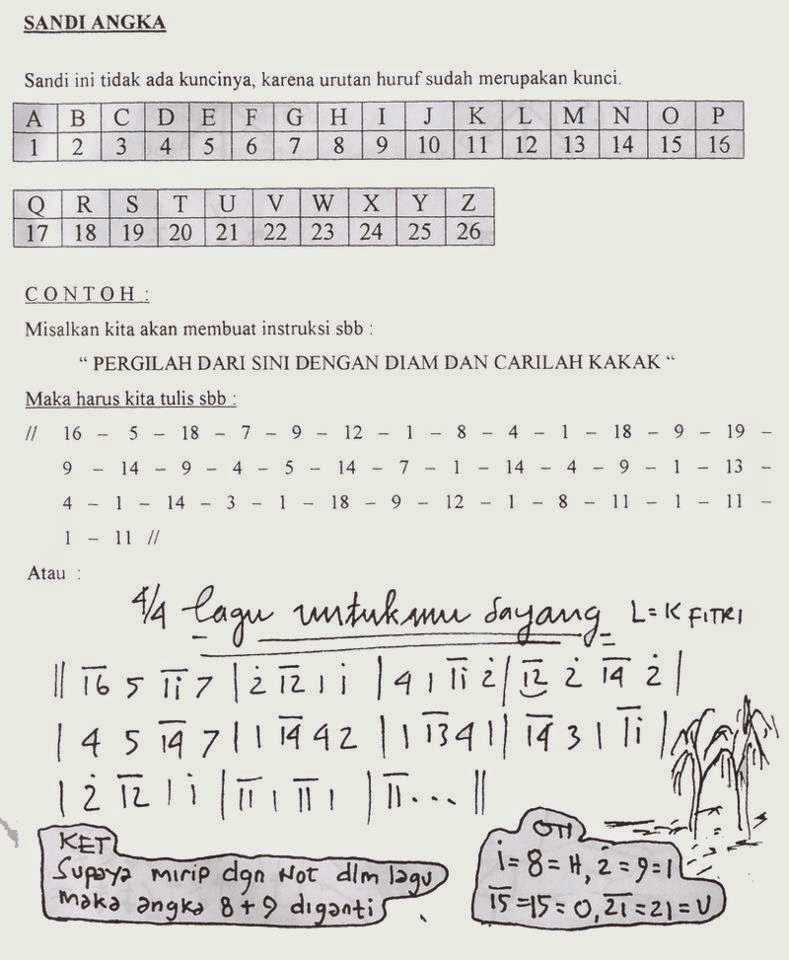 SANDI ANGKA
Sandi ini tidak ada kuncinya, karena urutan huruf sudah merupakan kunci.
A B C D E F G H I J K L M N O P
1 2 3 4 5 6 7 8 9 10 11 12 13 14 15 16
Q R S T U V W X Y Z
17 18 19 20 21 22 23 24 25 26
C O N T O H :
Misalkan kita akan membuat instruksi sbb :
“ PERGILAH DARI SINI DENGAN DIAM DAN CARILAH KAKAK “
Maka harus kita tulis sbb :
// 16 – 5 – 18 – 7 – 9 – 12 – 1 – 8 – 4 – 1 – 18 – 9 – 19 –
9 – 14 – 9 – 4 – 5 – 14 – 7 – 1 – 14 – 4 – 9 – 1 – 13 –
4 – 1 – 14 – 3 – 1 – 18 – 9 – 12 – 1 – 8 – 11 – 1 – 11 –
1 – 11 //
Atau :
4/4 lagu untukmu sayang L=K FITRI
|| 1̅6̅ 5 1̅i̅ 7 | 2̇ 1̅2̅ 1 i | 4 1 1̅i̅ 2̇ | 1̅2̅ 2̇ 1̅4̅ 2̇ |
| 4 5 1̅4̅ 7 | 1 1̅4̅ 4 2 | 1 1̅3̅ 4 1 | 1̅4̅ 3 1 1̅i̅ |
| 2̇ 1̅2̅ 1 i | 1̅1̅ 1 1̅1̅ 1 | 1̅1̅ ... ||
KET
Supaya mirip dgn Not dlm lagu
maka angka 8 + 9 diganti
i = 8 = H, 2̇ = 9 = I
1̅5̅ = 15 = O, 2̅1̅ = 21 = U